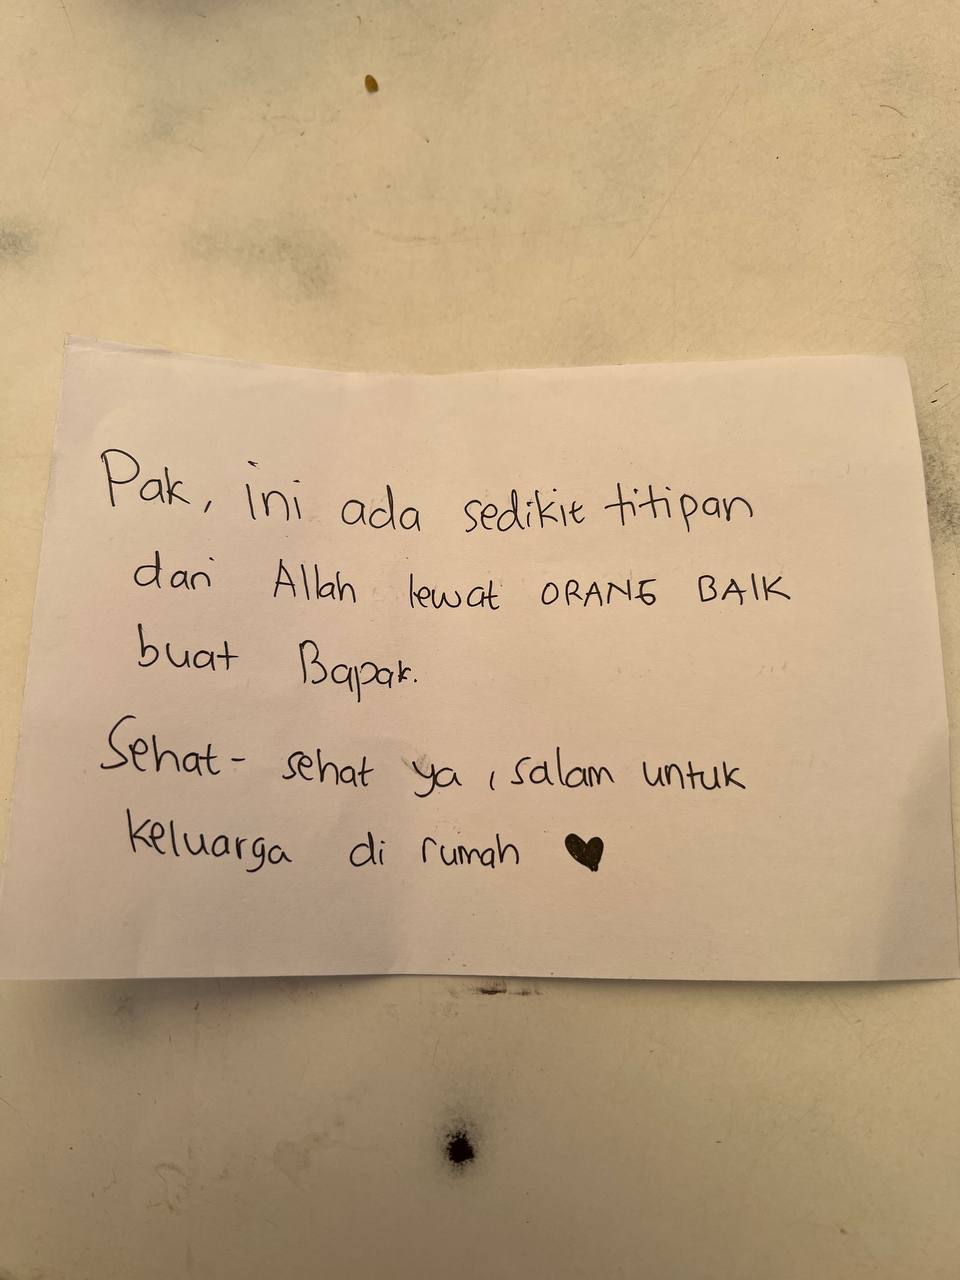 Pak, ini ada sedikit titipan
dari Allah lewat ORANG BAIK
buat Bapak.
Sehat - sehat ya, salam untuk
keluarga di rumah ♥